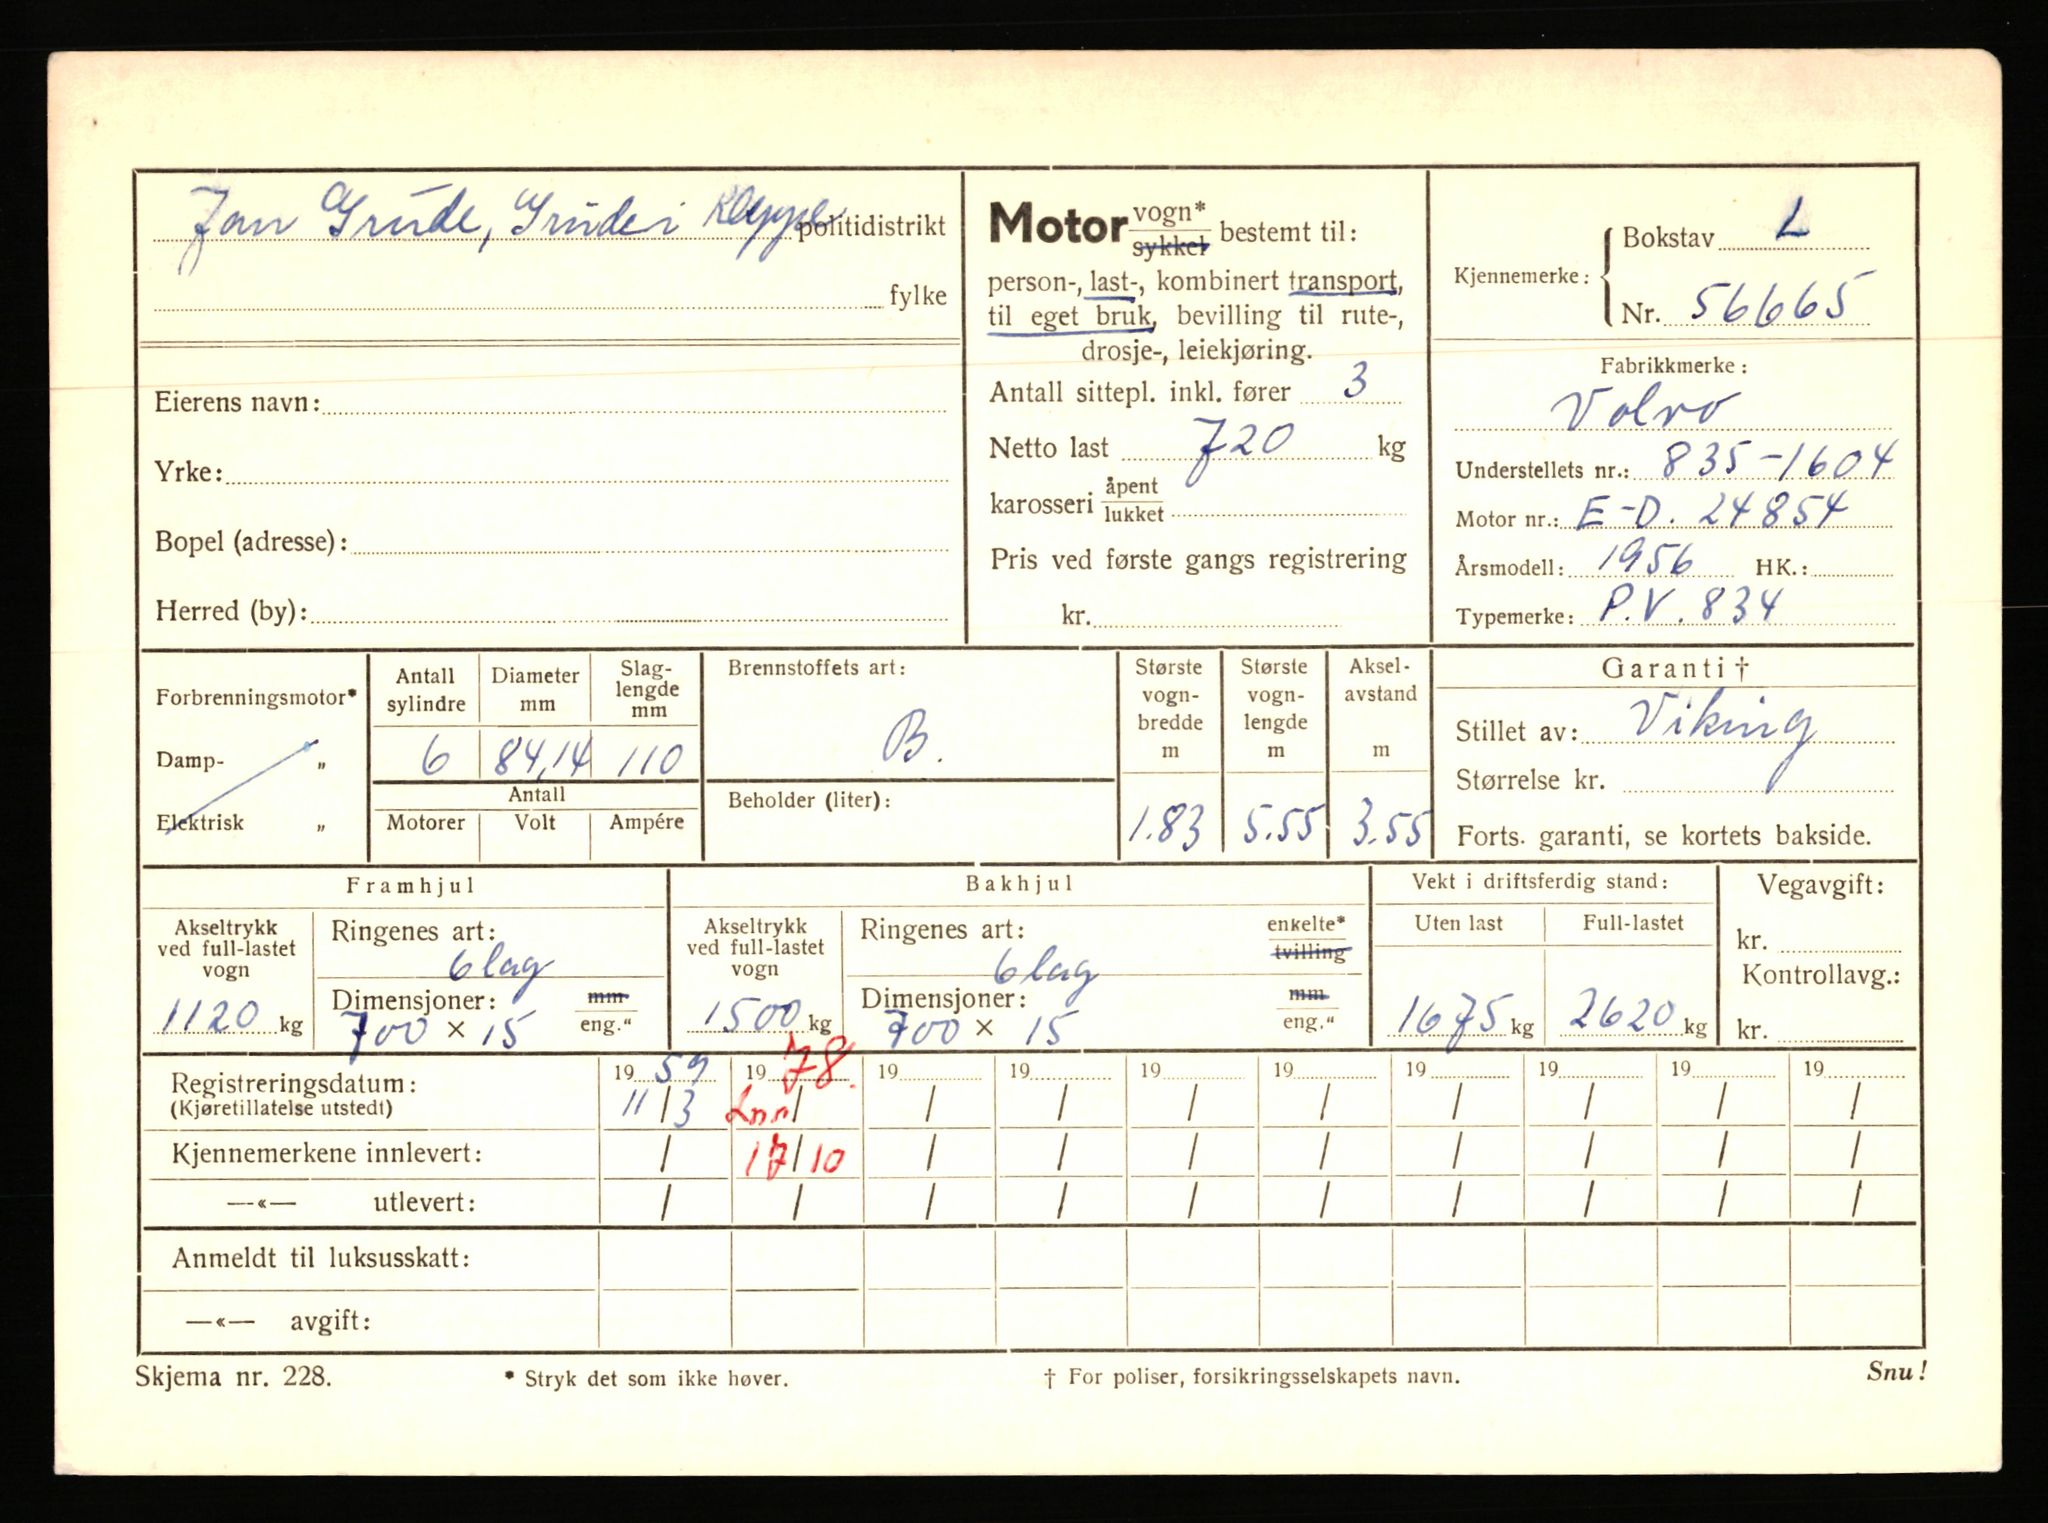 Jan Grude, Grude i Kleppe politidistrikt
fylke
Eierens navn:
Yrke:
Bopel (adresse):
Herred (by):
Motor vogn* sykkel bestemt til:
person-, last-, kombinert transport,
til eget bruk, bevilling til rute-,
drosje-, leiekjøring.
Antall sittepl. inkl. fører 3
Netto last 720 kg
karosseri åpent lukket
Pris ved første gangs registrering
kr.
Kjennemerke: Bokstav L
Nr. 56665
Fabrikkmerke:
Volvo
Understellets nr.: 835-1604
Motor nr.: E-D. 24854
Årsmodell: 1956 HK.:
Typemerke: P.V. 834
Forbrenningsmotor*
Damp- „
Elektrisk „
Antall sylindre
Diameter mm
Slag-lengde mm
6 84,14 110
Antall
Motorer Volt Ampére
Brennstoffets art:
B.
Beholder (liter):
Største vogn-bredde m
Største vogn-lengde m
Aksel-avstand m
1.83 5.55 3.55
Garanti †
Stillet av: Viking
Størrelse kr.
Forts. garanti, se kortets bakside.
Framhjul
Akseltrykk ved full-lastet vogn
1120 kg
Ringenes art:
6 lag
Dimensjoner: mm eng."
700 × 15
Bakhjul
Akseltrykk ved full-lastet vogn
1500 kg
Ringenes art: enkelte* tvilling
6 lag
Dimensjoner: mm eng."
700 × 15
Vekt i driftsferdig stand:
Uten last Full-lastet
1675 kg 2620 kg
Vegavgift:
kr.
Kontrollavg.:
kr.
Registreringsdatum: 19 59 19 78. 19 19 19 19 19 19 19 19
(Kjøretillatelse utstedt) 11/3 / / / / / / / / /
Kjennemerkene innlevert: / 17/10 / / / / / / / /
—«— utlevert: / / / / / / / / / /
Anmeldt til luksusskatt:
—«— avgift:
Skjema nr. 228. * Stryk det som ikke høver. † For poliser, forsikringsselskapets navn. Snu!